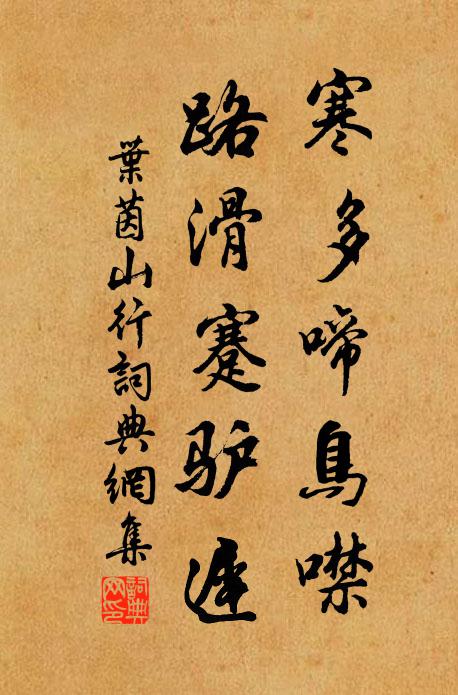 寒多啼鳥噤
路滑蹇驴遲
葉茵山行詞典網集
詞典網印